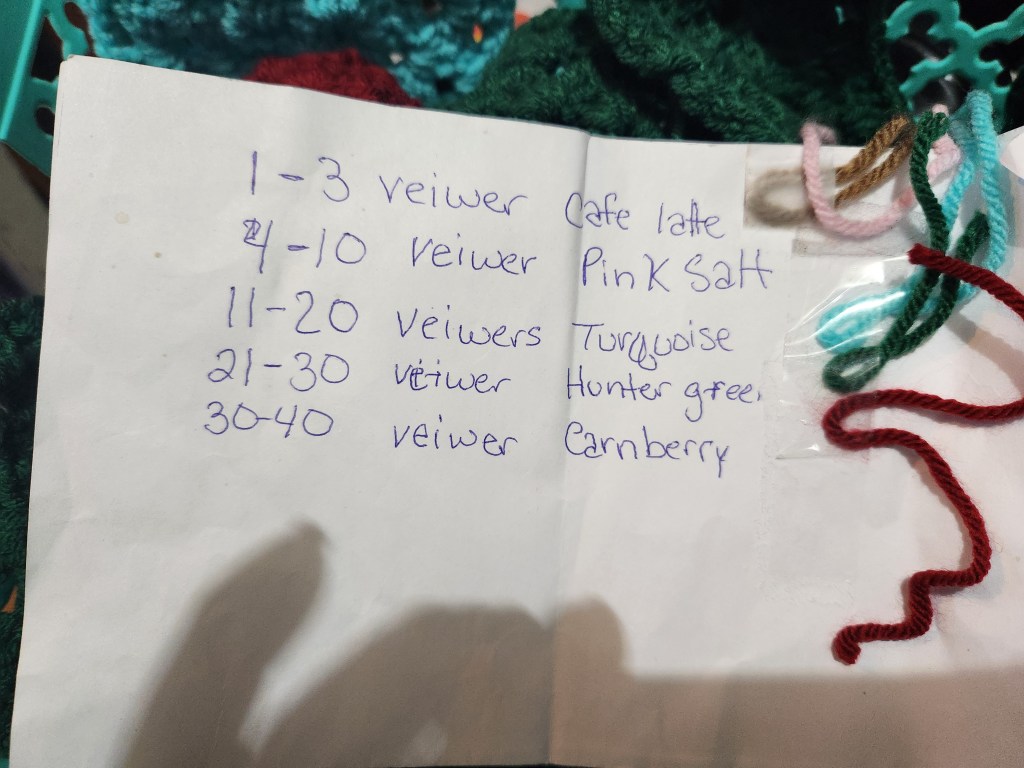 1-3 veiwer Cafe latte
4-10 veiwer Pink Salt
11-20 veiwers Turquoise
21-30 veiwer Hunter green
30-40 veiwer Carnberry